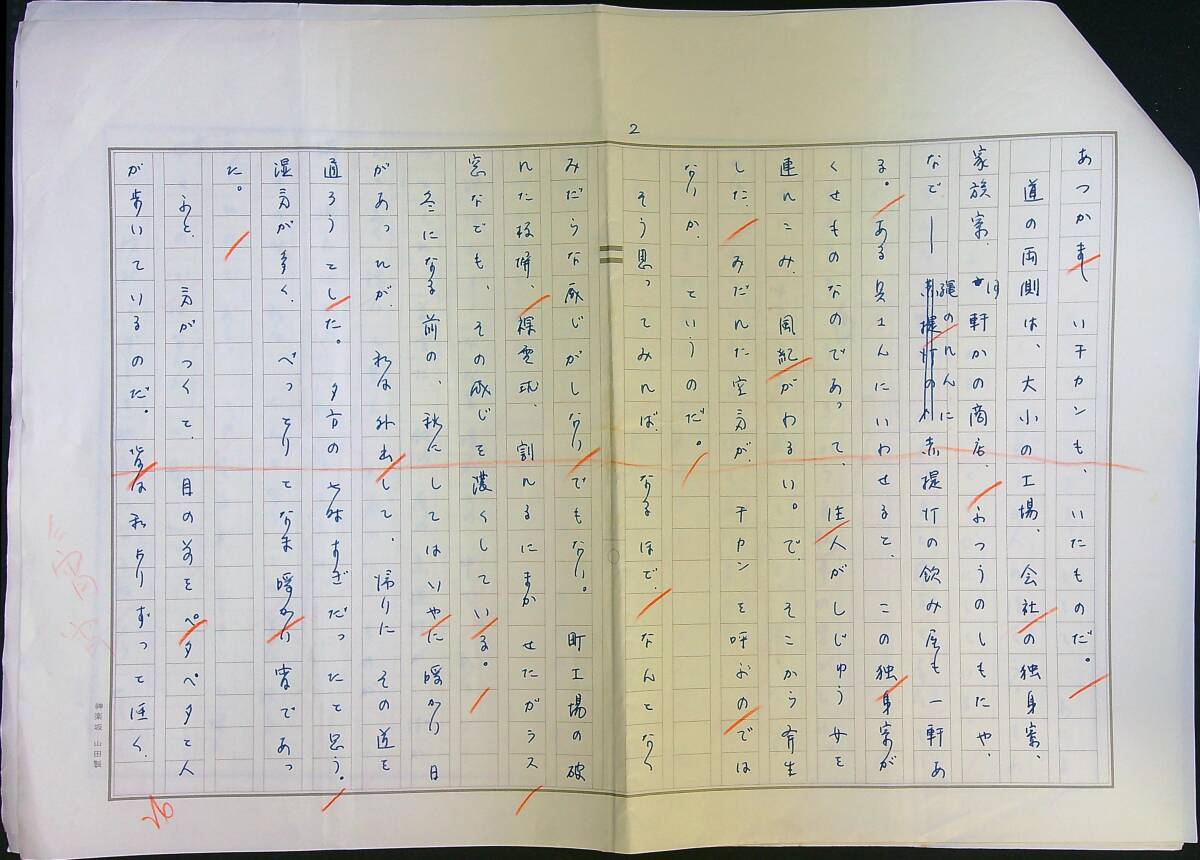 2
あつかまし いチカンも、いたものだ。
道の両側は、大小の工場、会社の独身寮、
家族寮、 軒かの商店、ふつうのしもたや、
なで― 縄のれんに赤提灯の飲み屋も一軒あ
る。ある 人にいわせると、この独身寮が
くせものなのであって、住人がしじゅう女を
連れこみ、風紀がわるい。で、そこから 生
した、みだれた空気が、チカンを呼ぶのでは
ないか、っていうのだ。
そう思ってみれば、なるほど、なんとなく
みだらな感じがしないでもない。町工場の破
れた板塀、裸電球、割れるにまかせたガラス
窓なども、その感じを濃くしている。
冬になる前の、秋にしてはいやに暖かい日
があったが、私は外出して、帰りにその道を
通ろうとした。夕方の七時すぎだったと思う。
湿気が多く、べっとりとなま暖かい宵であっ
た。
ふと、気がつくと、目の前をペタペタと人
が歩いているのだ。背は私よりずっと低く、
神楽坂 山田製